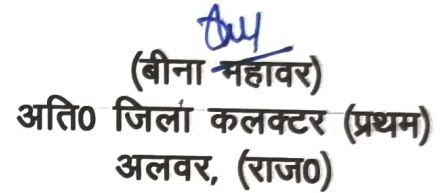 (बीना महावर)
अति0 जिला कलक्टर (प्रथम)
अलवर, (राज0)